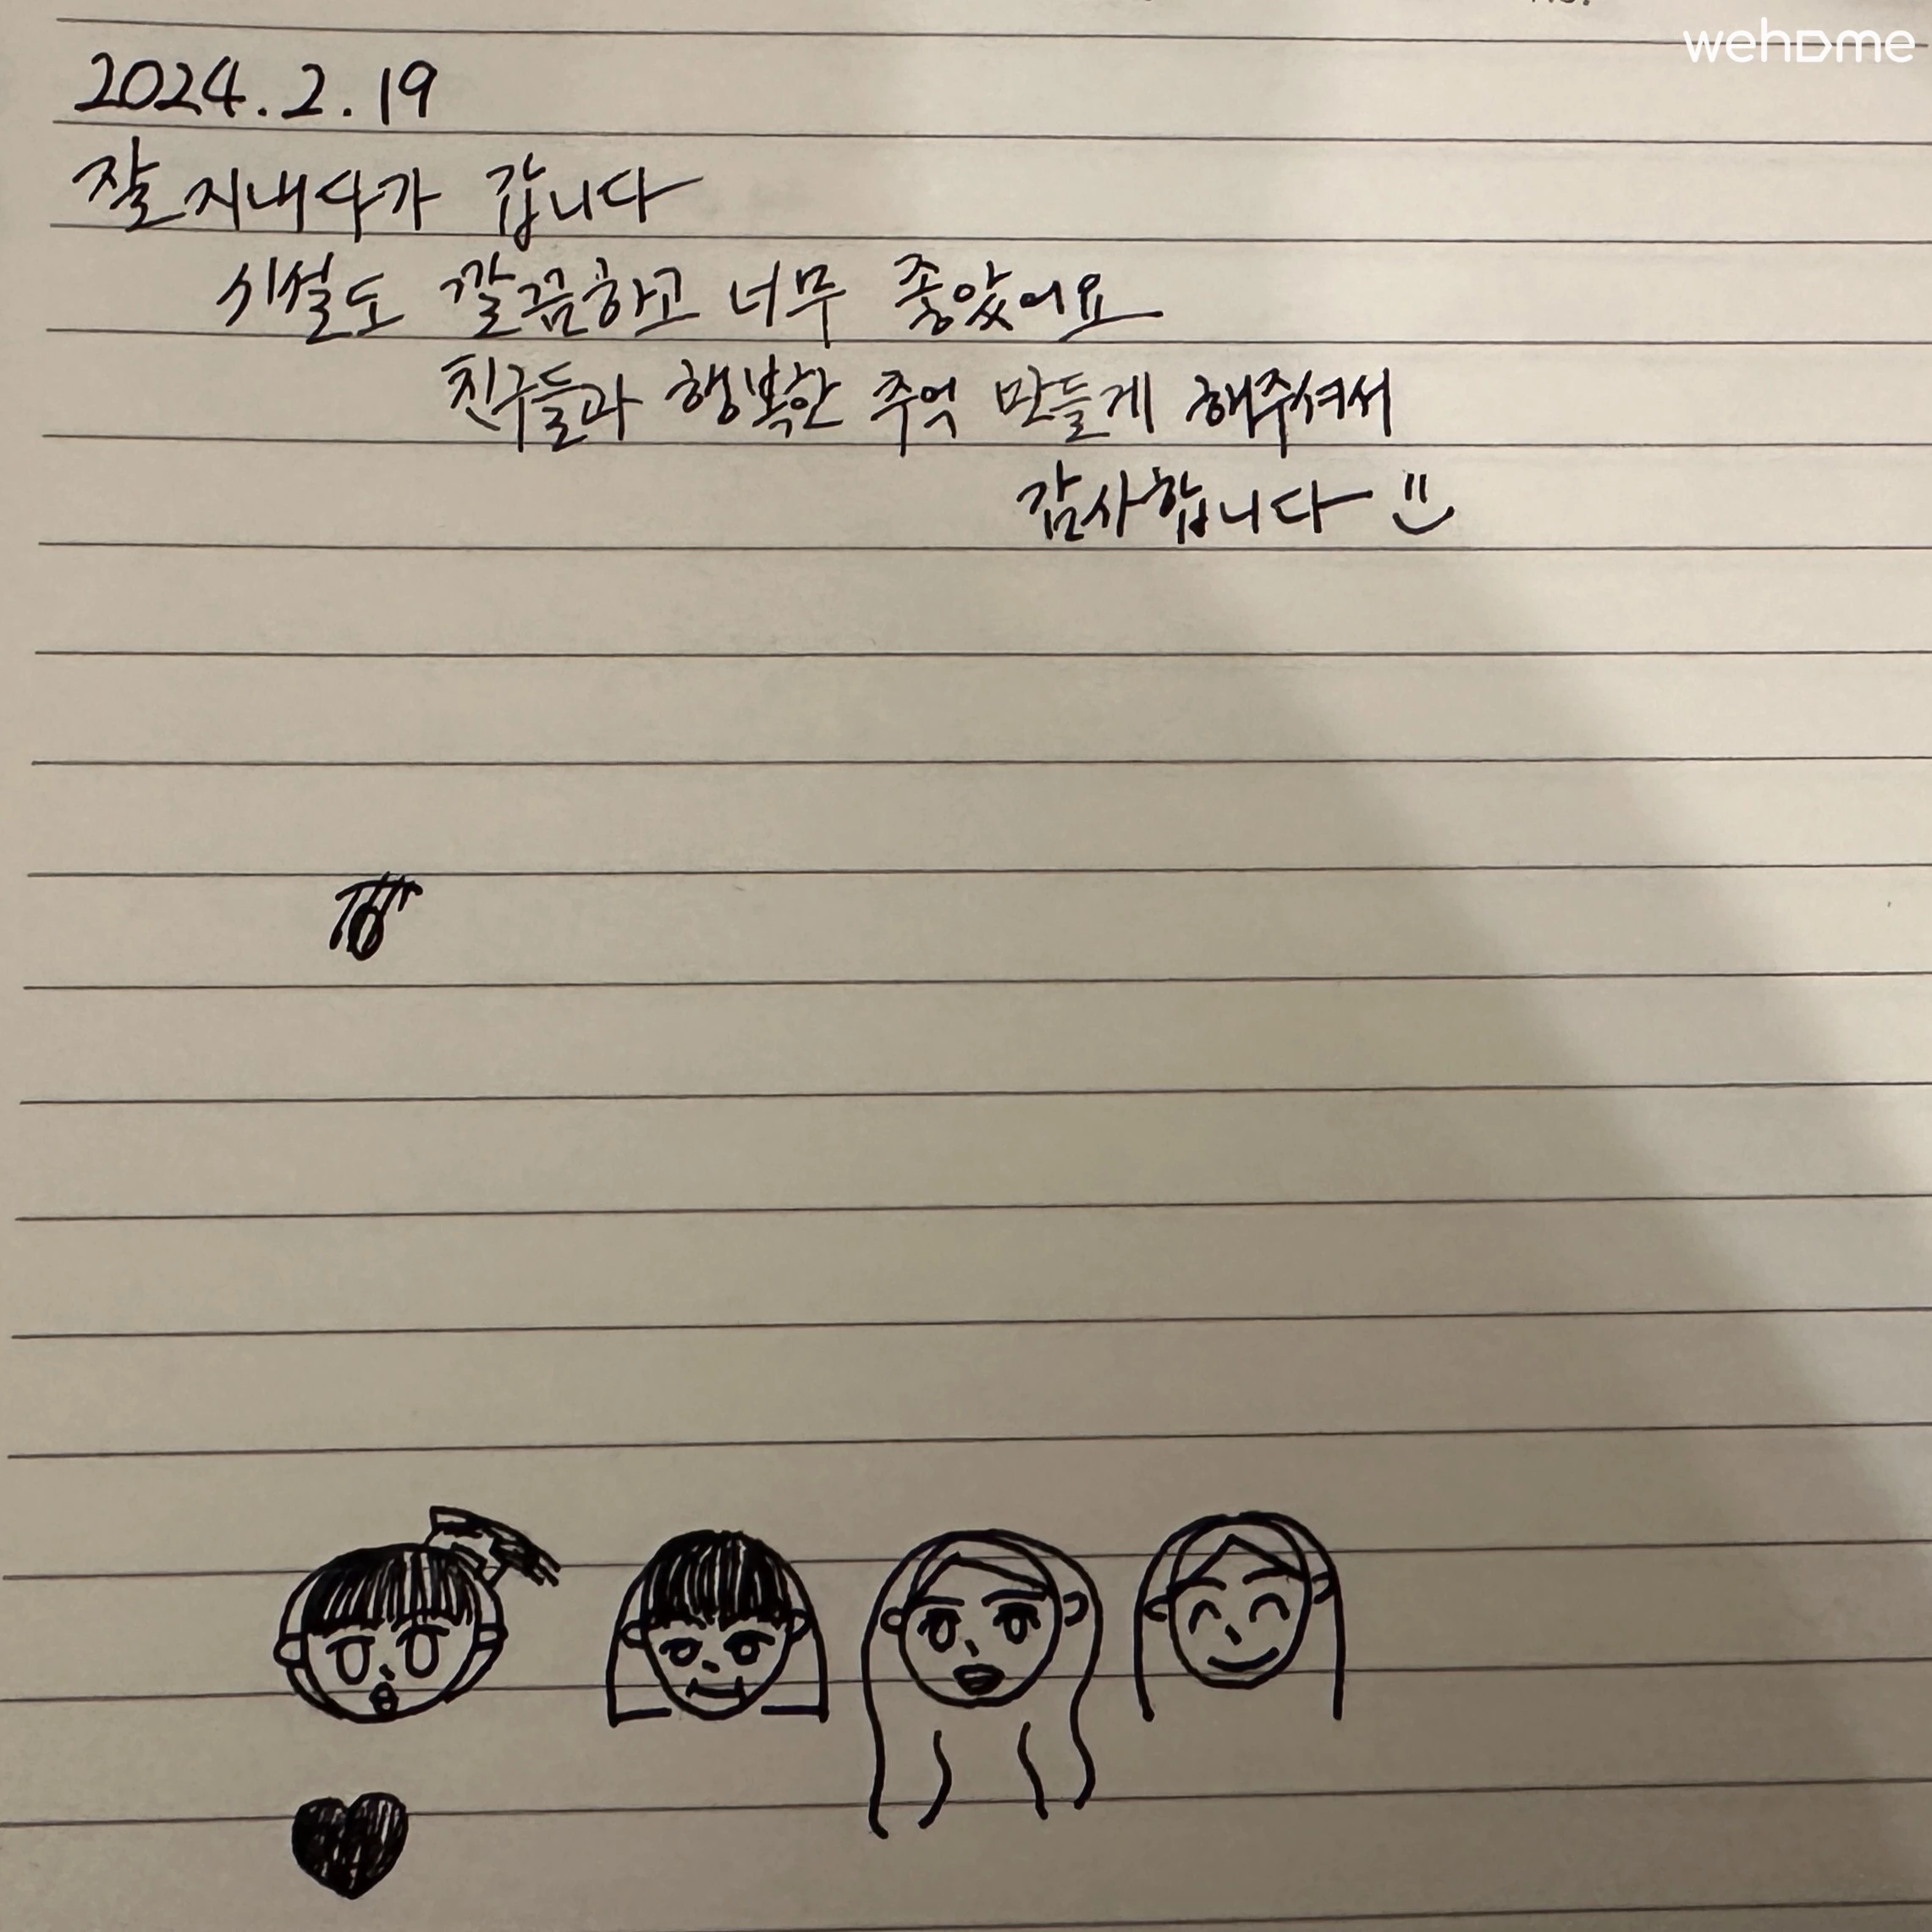 wehome
2024.2.19
잘 지내다가 갑니다
시설도 깔끔하고 너무 좋았어요
친구들과 행복한 추억 만들게 해주셔서
감사합니다